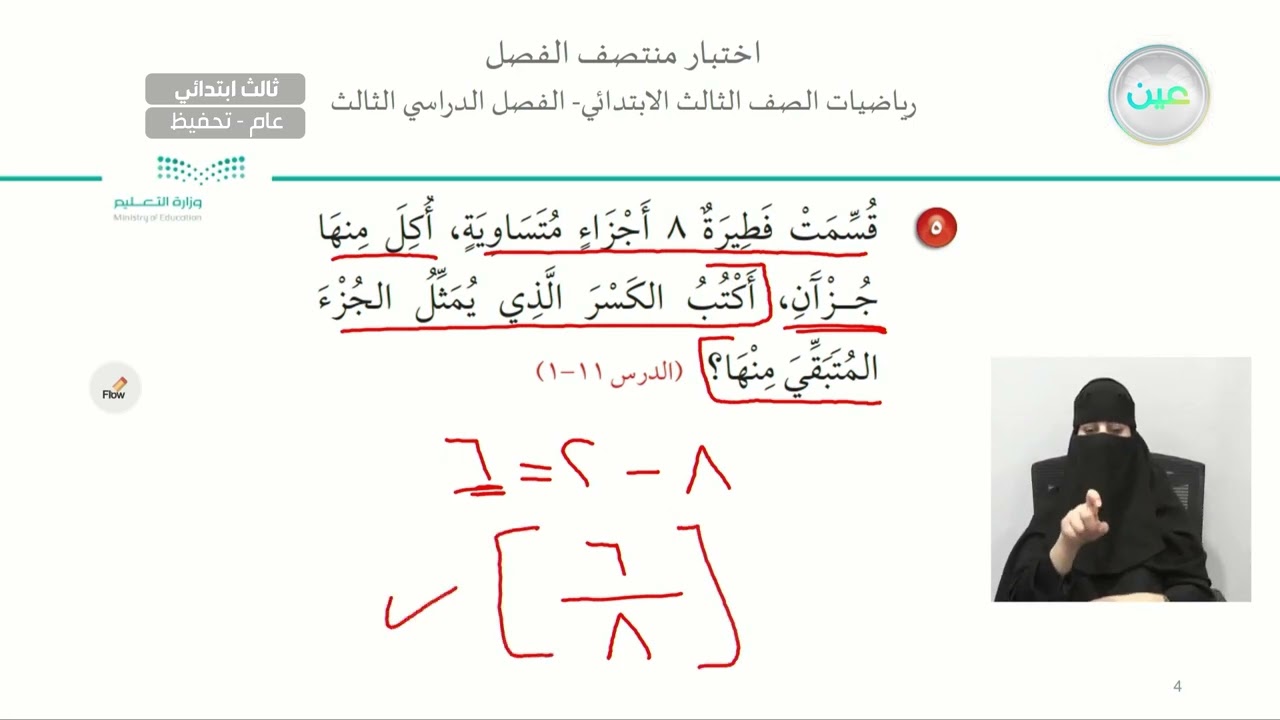 اختبار منتصف الفصل
رياضيات الصف الثالث الابتدائي- الفصل الدراسي الثالث
ثالث ابتدائي
عام - تحفيظ
عين
وزارة التعـــليم
Ministry of Education
٥
قُسِّمَتْ فَطِيرَةٌ ٨ أَجْزَاءٍ مُتَسَاوِيَةٍ، أُكِلَ مِنهَا
جُــزْآنِ، أَكْتُبُ الكَسْرَ الَّذِي يُمَثِّلُ الجُزْءَ
المُتَبَقِّيَ مِنْهَا؟ (الدرس ١١-١)
Flow
٨ - ٢ = ٦
٦
٨
4